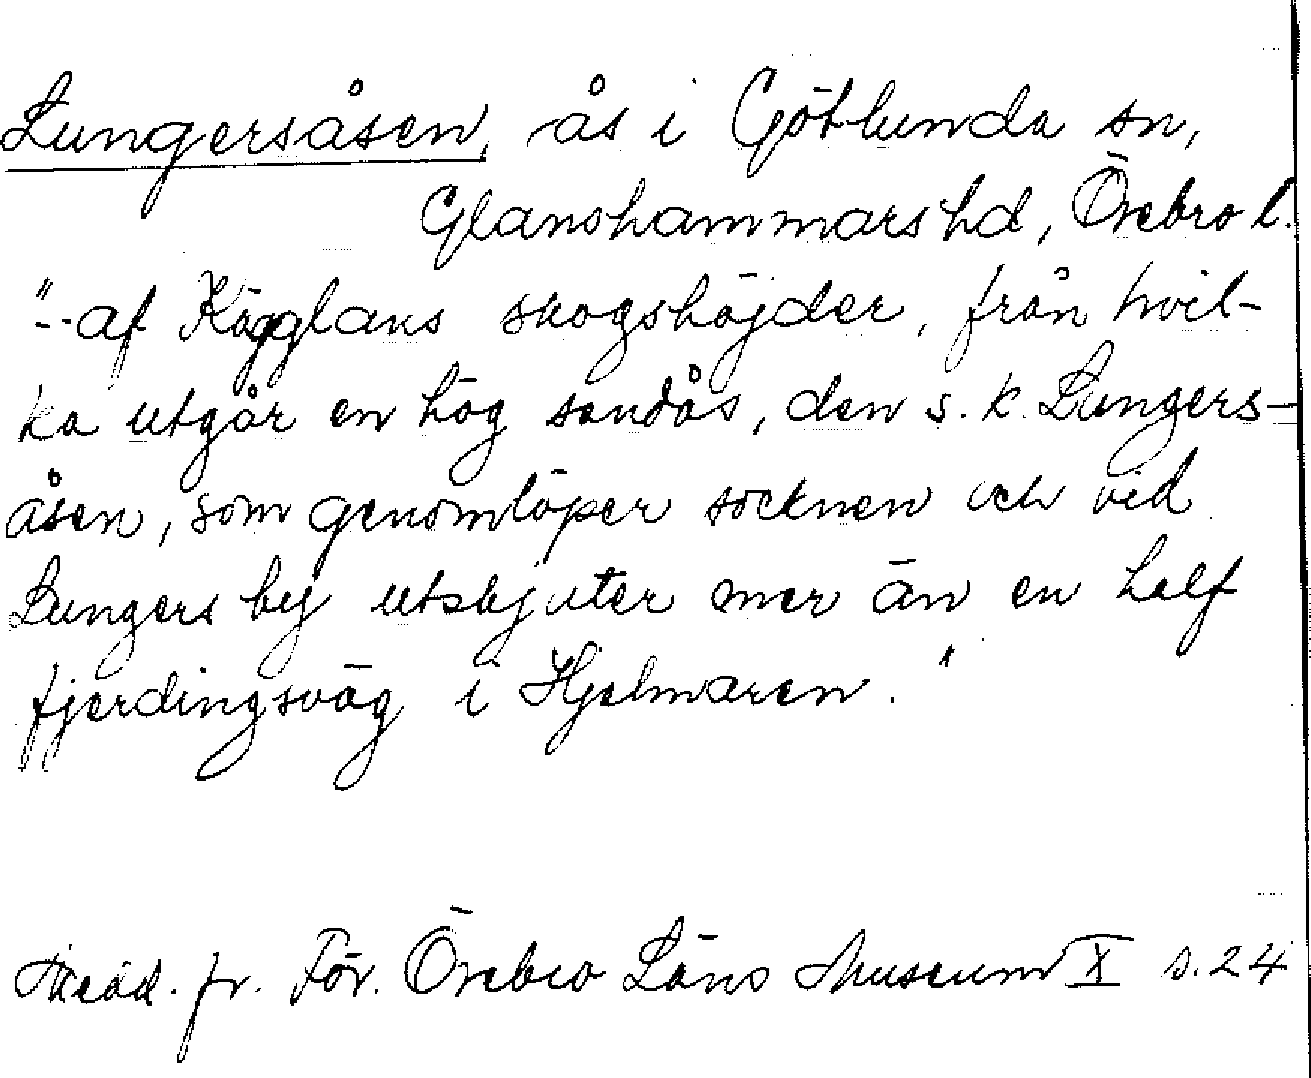 Lungersåsen, ås i Götlunda sn,
Glanshammars hd, Örebro l.
"-- af Kägglans skogshöjder, från hvil-
ka utgår en hög sandås, den s. k. Lungers-
åsen, som genomlöper socknen och vid
Lungers by utskjuter mer än en half
fjerdingsväg i Hjelmaren."
Medd. fr. För. Örebro Läns Museum X s. 24